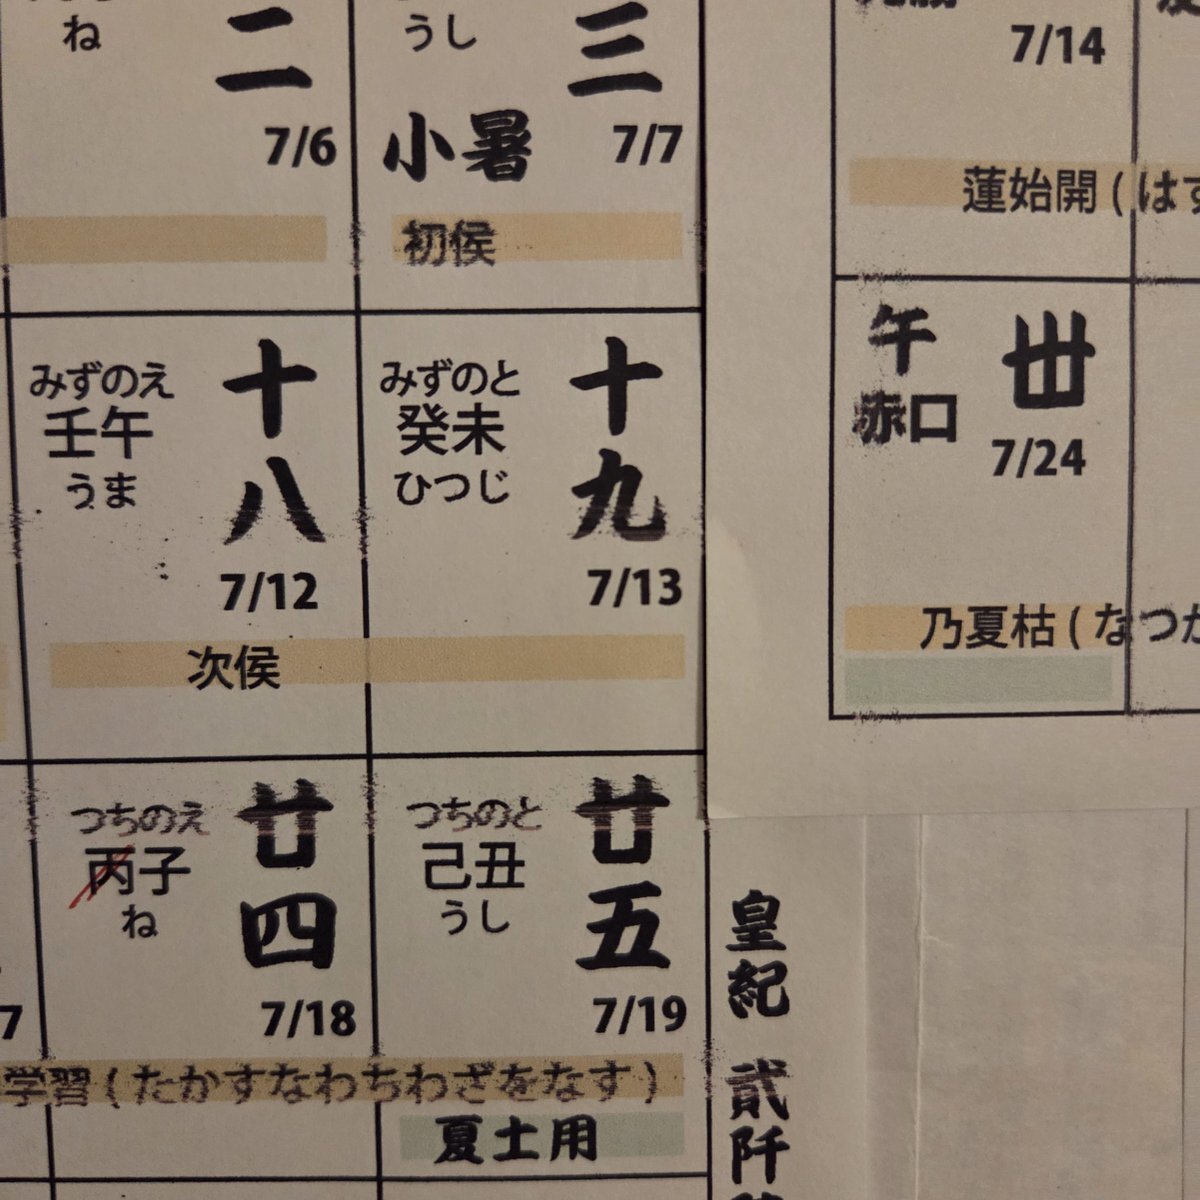 ね
二
7/6
うし
三
小暑
7/7
初侯
みずのえ
壬午
うま
十八
7/12
みずのと
癸未
ひつじ
十九
7/13
次侯
つちのえ
丙子
ね
廿四
7/18
つちのと
己丑
うし
廿五
7/19
学習(たかすなわちわざをなす)
夏土用
7/14
蓮始開(はす
午
赤口
丗
7/24
乃夏枯(なつか
皇紀 貳阡